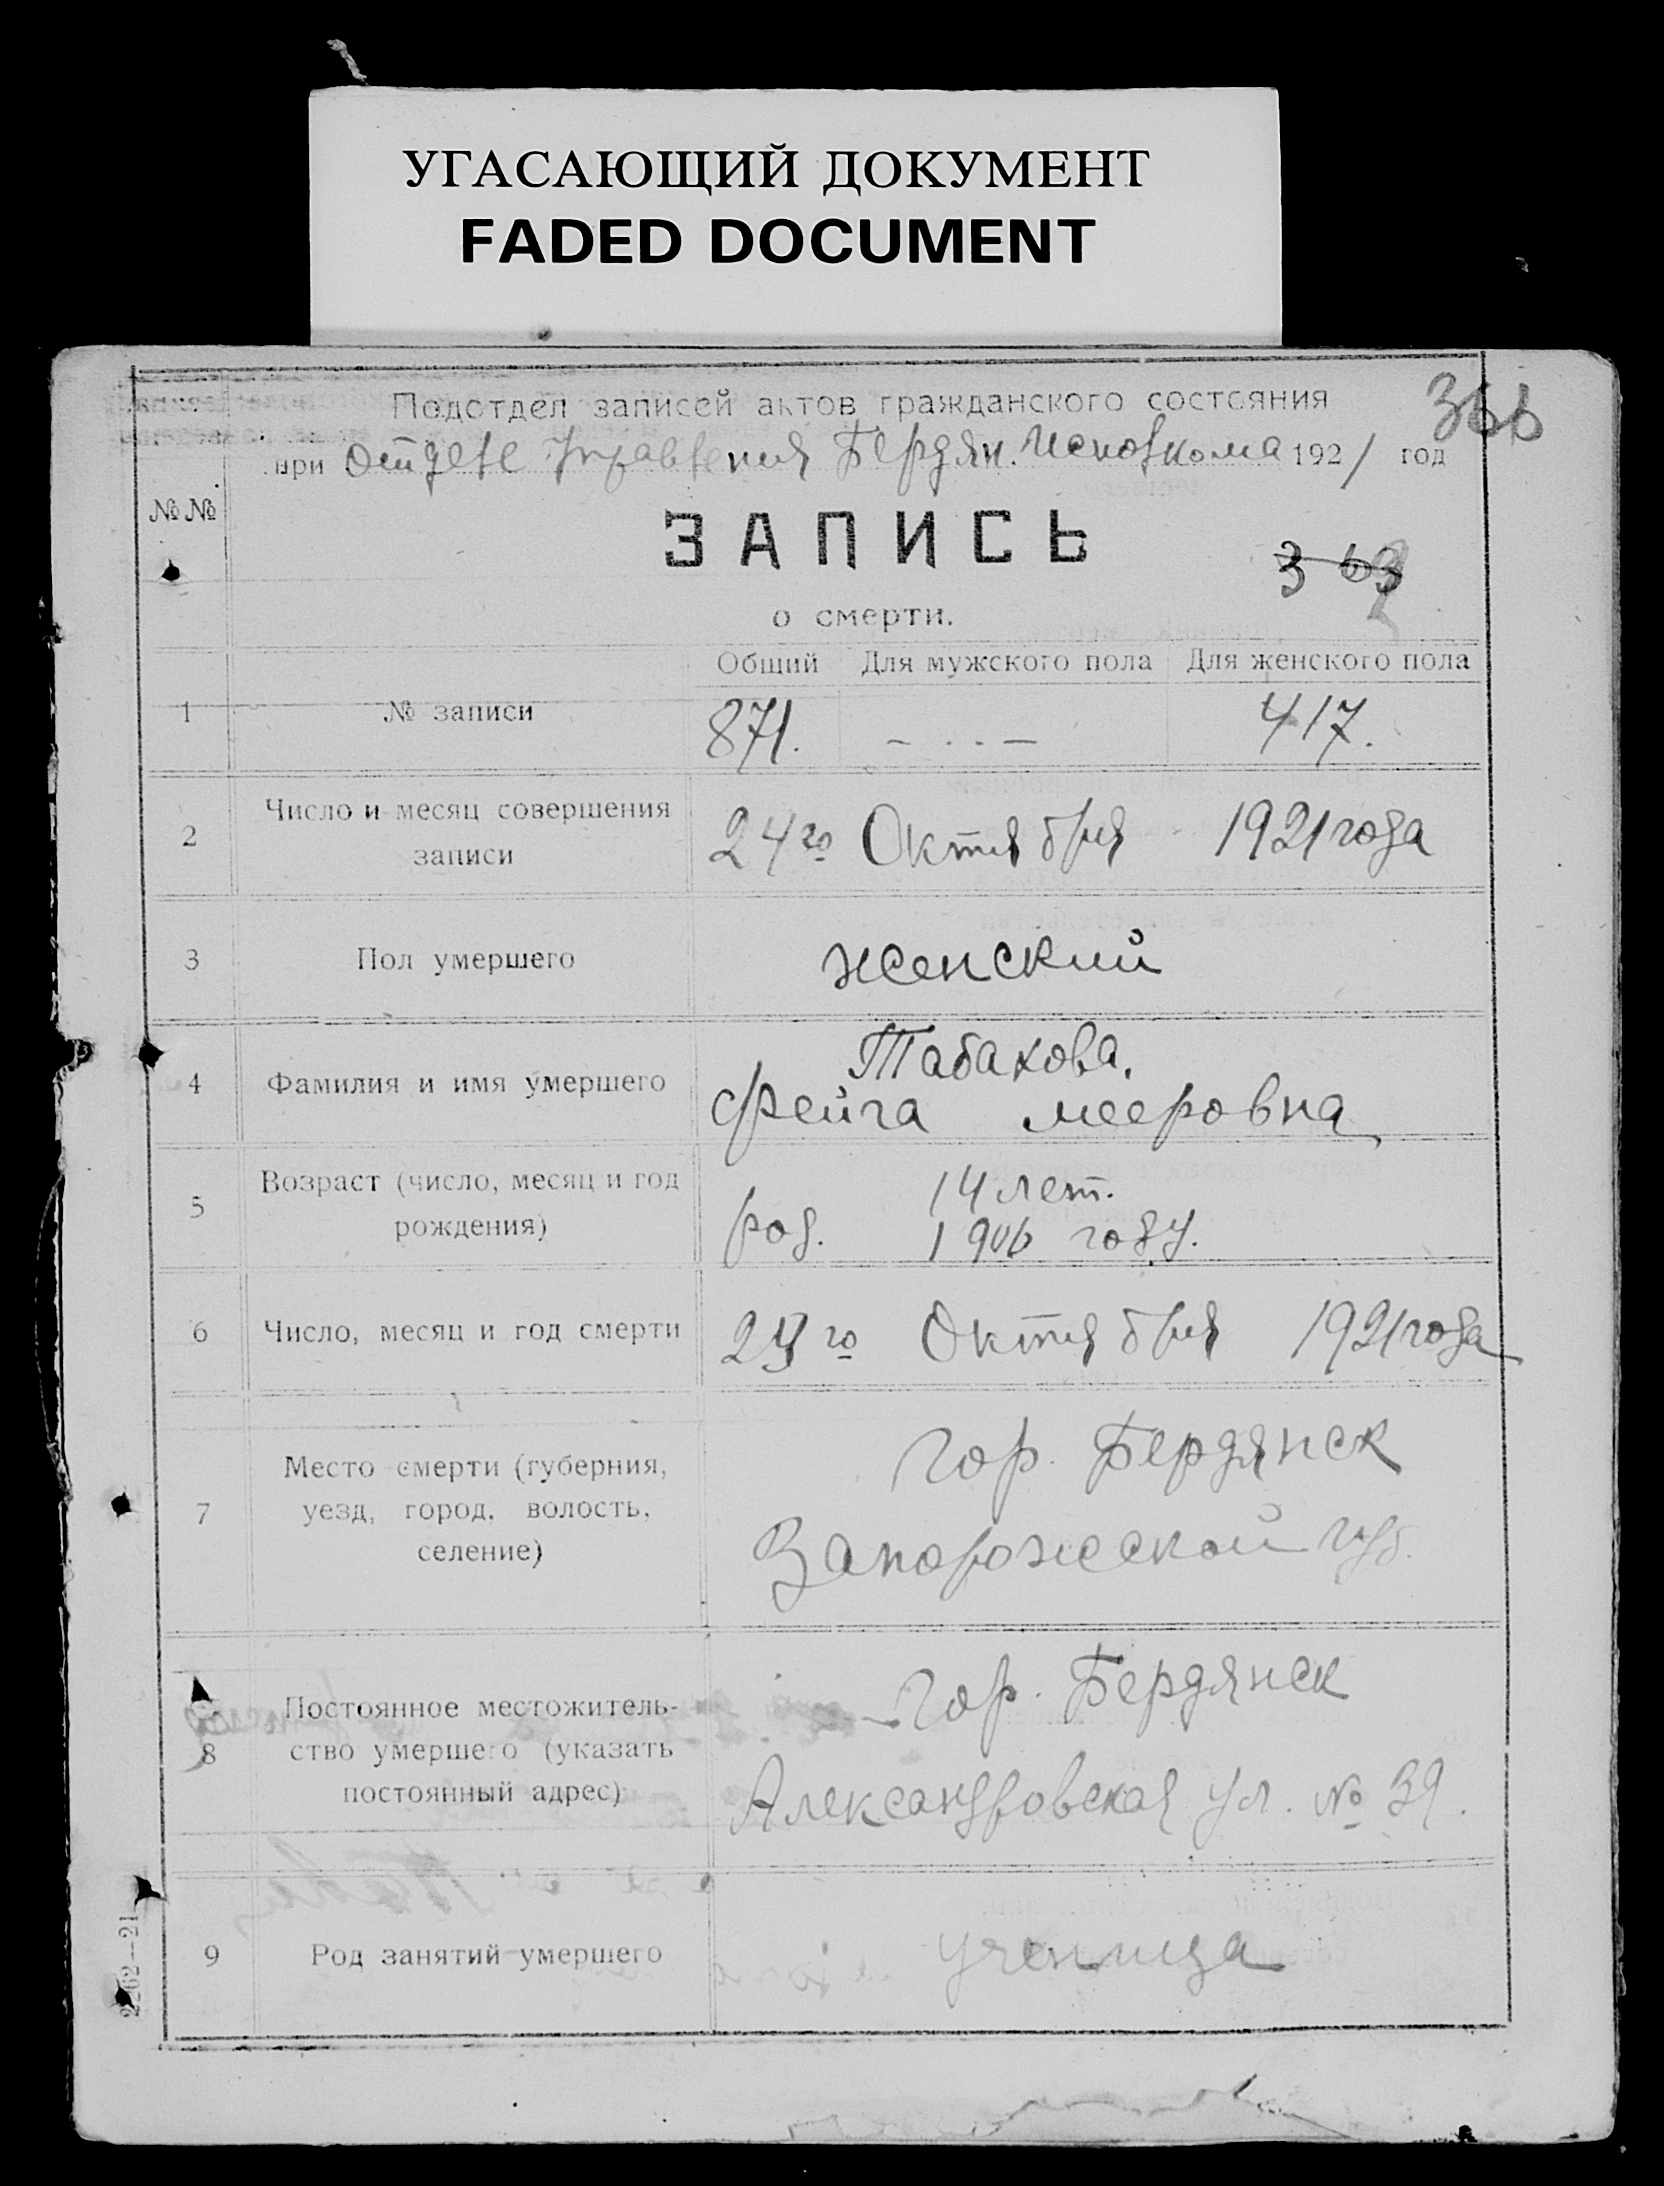 УГАСАЮЩИЙ ДОКУМЕНТ
FADED DOCUMENT
Подотдел записей актов гражданского состояния
366
при отделе Управления Бердян. Исполкома 1921 год
№№
ЗАПИСЬ
363
о смерти.
Общий Для мужского пола Для женского пола
1 № записи 871. — 417.
2 Число и месяц совершения записи 24го Октября 1921 года
3 Пол умершего женский
4 Фамилия и имя умершего Табакова,
Фейга Мееровна
5 Возраст (число, месяц и год рождения) 14 лет.
род. 1906 году.
6 Число, месяц и год смерти 23го Октября 1921 года
7 Место смерти (губерния, уезд, город, волость, селение) Гор. Бердянск
Запорожской губ.
8 Постоянное местожительство умершего (указать постоянный адрес) Гор. Бердянск
Александровская ул. № 39.
9 Род занятий умершего ученица
2262—21